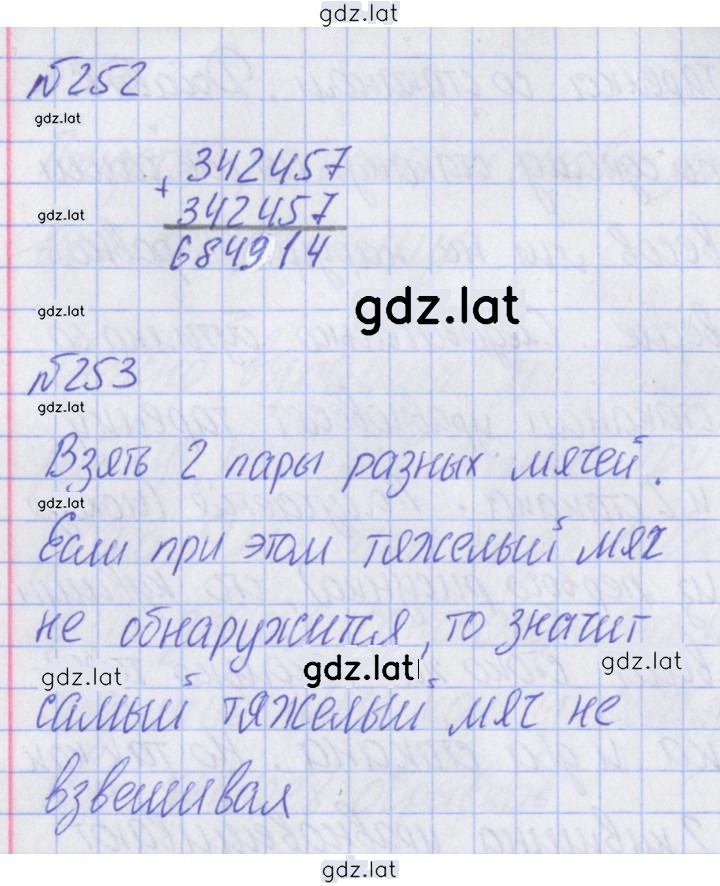 gdz.lat
№252
gdz.lat
342457
+
gdz.lat
342457
684914
gdz.lat
gdz.lat
№253
gdz.lat
Взять 2 пары разных мячей.
gdz.lat
Если при этом тяжелый мяч
не обнаружится, то значит
gdz.lat
gdz.lat
gdz.lat
самый тяжелый мяч не
взвешивал
gdz.lat